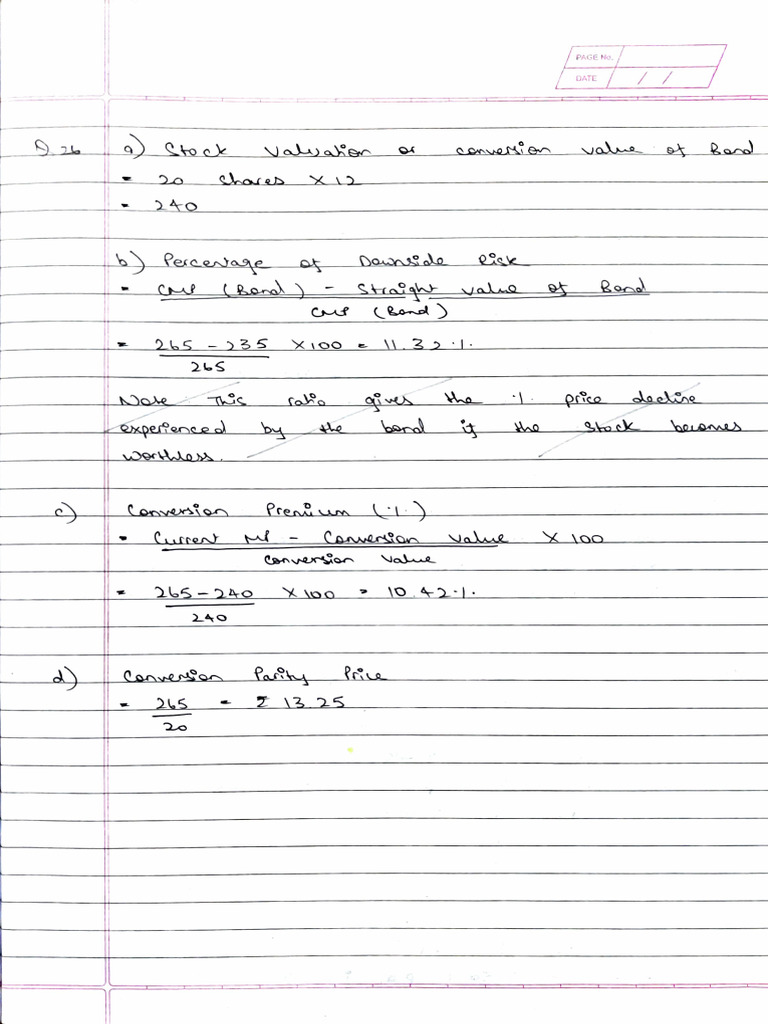 PAGE No.
DATE / /
Q.26 a) Stock Valuation or conversion value of Bond
= 20 Shares X 12
= 240
b) Percentage of Downside Risk
= CMP (Bond) - Straight value of Bond
CMP (Bond)
= 265 - 235 X 100 = 11.32 %
265
Note This ratio gives the % price decline
experienced by the bond if the Stock becomes
worthless.
c) Conversion Premium (%)
= Current MP - Conversion value X 100
conversion value
= 265 - 240 X 100 = 10.42 %
240
d) Conversion Parity Price
= 265 = ₹ 13.25
20